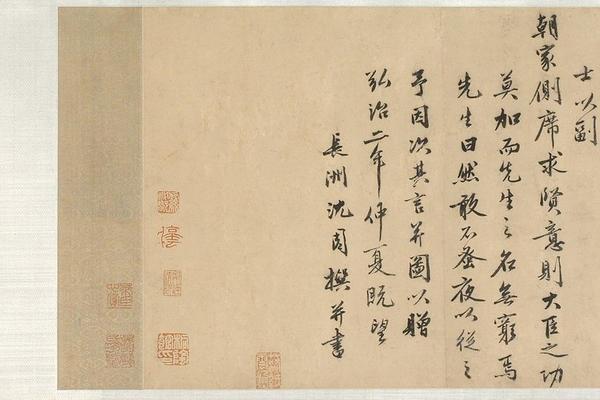 士以副
朝家側席求賢意則大臣之功
莫加而先生之名無窮焉
先生曰然敢不蚤夜以從之
予因次其言并圖以贈
弘治二年仲夏既望
長洲沈周撰并書